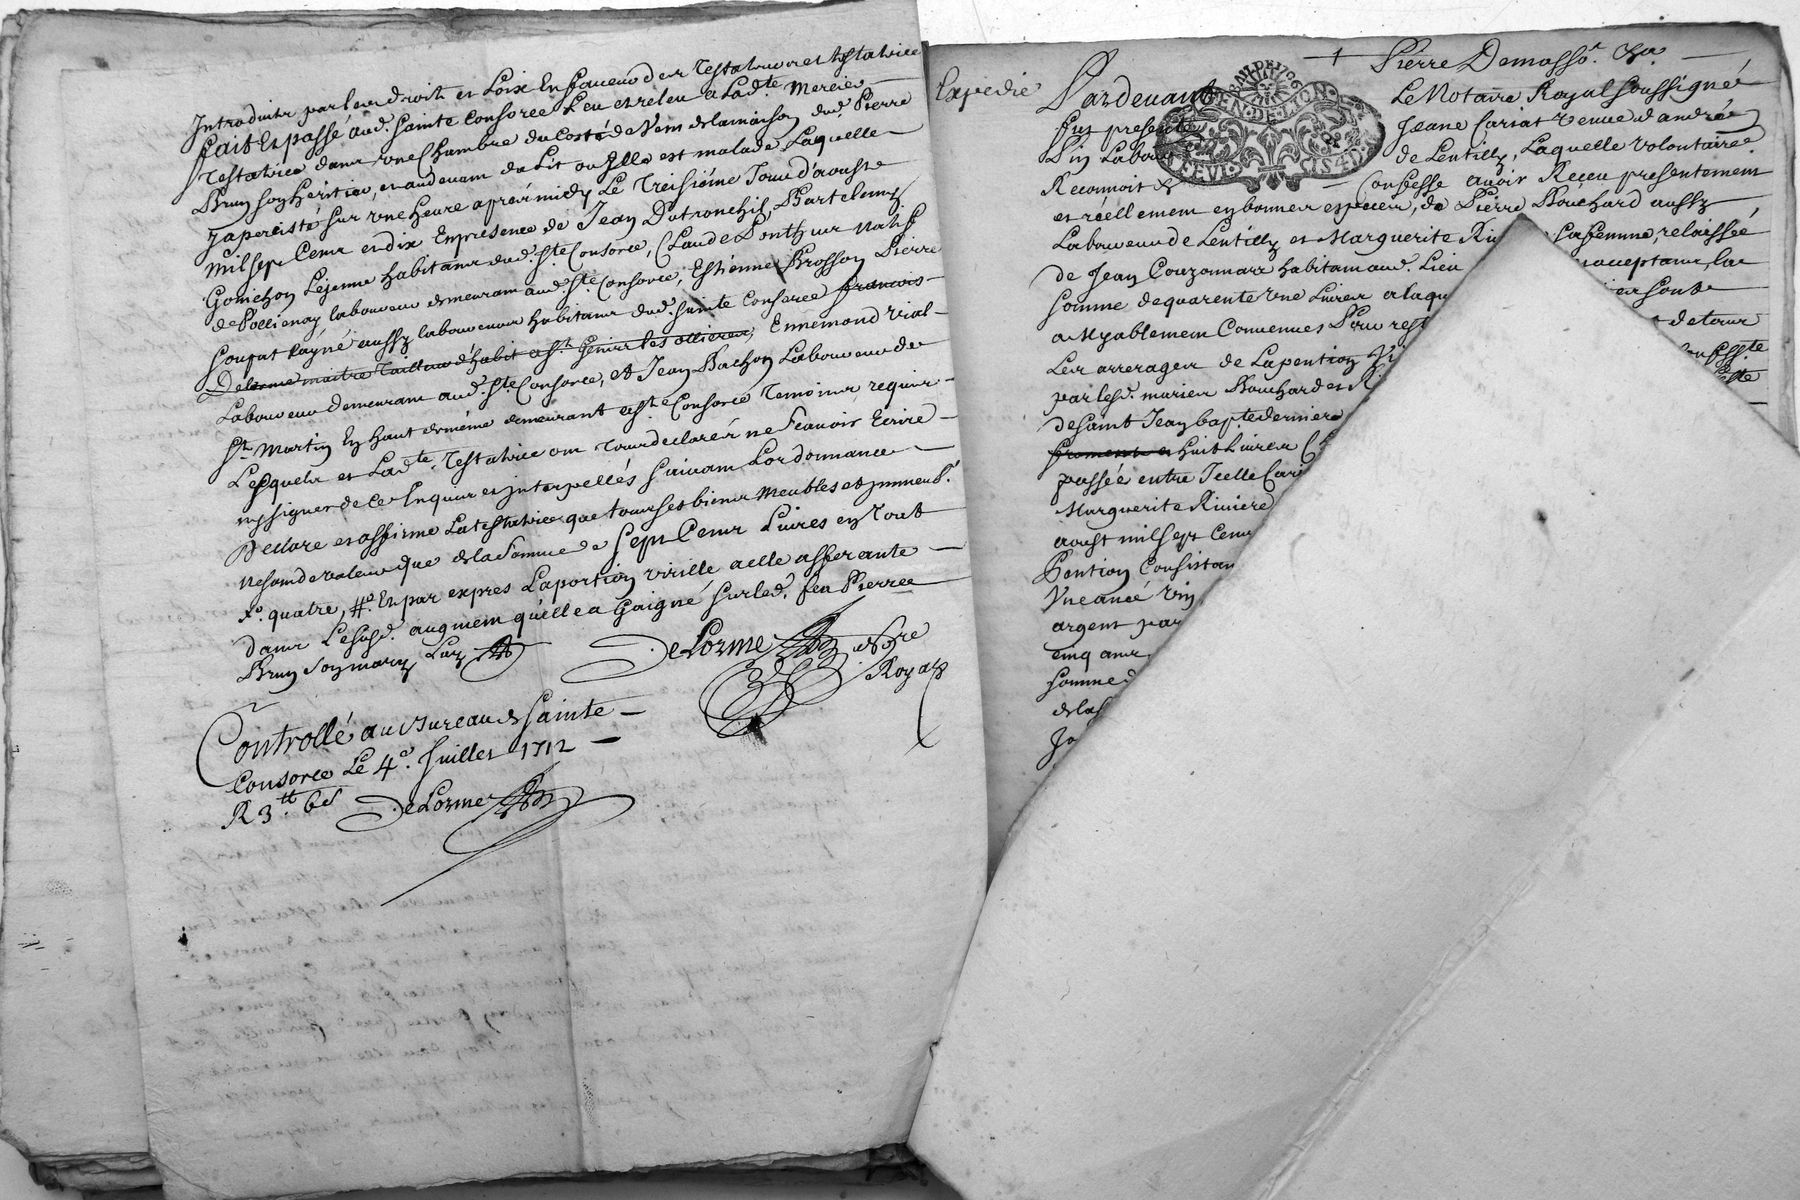 Introduitte par leur droits et Loix En faueur des Testateurs et testatrice
fait Et passé aud. Sainte Consorce Leu et releu a Lad.te Mercier
Testatrice dans vne Chambre du Costé de Vent de la maison dud. Pierre
Brun son héritier, et audeuant du Lit ou Jlle est malade Laquelle
y a percisté sur vne heure aprés midy Le Treisiéme Jour d'aoust
Mil sept Cens et dix En presence de Jean Dutronchil, Bartelemy
Gonichon Lejeune habitans dud. Ste Consorce, Claude Ponthus natif
de Pollienay laboureur demeurant aud. Ste Consorce, Estienne Brosson Pierre
Goupat Payné aussy laboureurs habitans dud. Sainte Consorce francois
Delorme maitre Tailleur d'habit Ennemond vial
Laboureur demeurant aud. Ste Consorce, et Jean Bachon Laboureur de
St. Martin En haut de méme demeurant a Ste Consorce Temoins requis
Lesquels et Lad.te Testatrice ont Tous declarér ne scauoir Ecrire
ny signer de ce Enquis et interpellés suiuant Lordonnance
Declare et affirme La testatrice que tous ses biens Meubles et jmmeub.
ne sont de valeur que de la Somme de Sept Cens Liures en Tout
x. quatre, #. Et par expres La portion virille a elle afferante
dans Lesusd. augment qu'elle a Gaigné sur led. feu Pierre
Brun son mary Luy
DeLorme no.re
Royal
Controllé au Bureau de Sainte
Consorce Le 4e. Juillet 1712
R 3.tt 6s
DeLorme
Expedié
Pierre Demasso.
Pardeuant Le Notaire Royal Soussigné
fut presente Jeane Cariat veuue d'andré
Lin Labour de Lentilly, Laquelle volontaire.
Reconnoit & Confesse auoir Receu presentement
et réellement en bonnes especes, de Pierre Bouchard aussy
Laboureur de Lentilly et Marguerite Ri sa femme, relaissée
de Jean Couzonnar habitans aud. Lieu acceptans, la
somme de quarente vne Liures a laqu
amyablement Conuenues Pour rest
Les arrerages de La pention
par lesd. mariés Bouchard et Ri
de Saint Jean baptiste derniere
froment et huit Liures
passée entre Jcelle Cari
Marguerite Riuiere
aoust mil sept Cens
Pention Consistan
Vne anée
argent par
cinq ans
somme d
de la
GEN. DE LYON